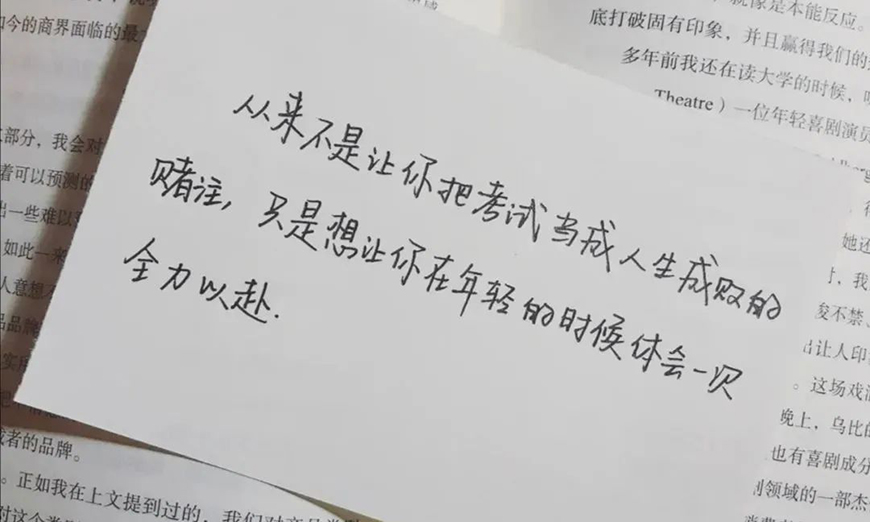 如今的商界面临的最
部分，我会对
着可以预测的
出一些难以
如此一来
人意想不
品品牌
或者的品牌。
。正如我在上文提到过的，我们对商品类别
从来不是让你把考试当成人生成败的
赌注，只是想让你在年轻的时候体会一次
全力以赴.
就像是本能反应。
底打破固有印象，并且赢得我们的
多年前我还在读大学的时候，
Theatre）一位年轻喜剧演员
她还
，我
俊不禁、
出让人印
。这场戏
晚上，乌比的
也有喜剧成分
领域的一部杰